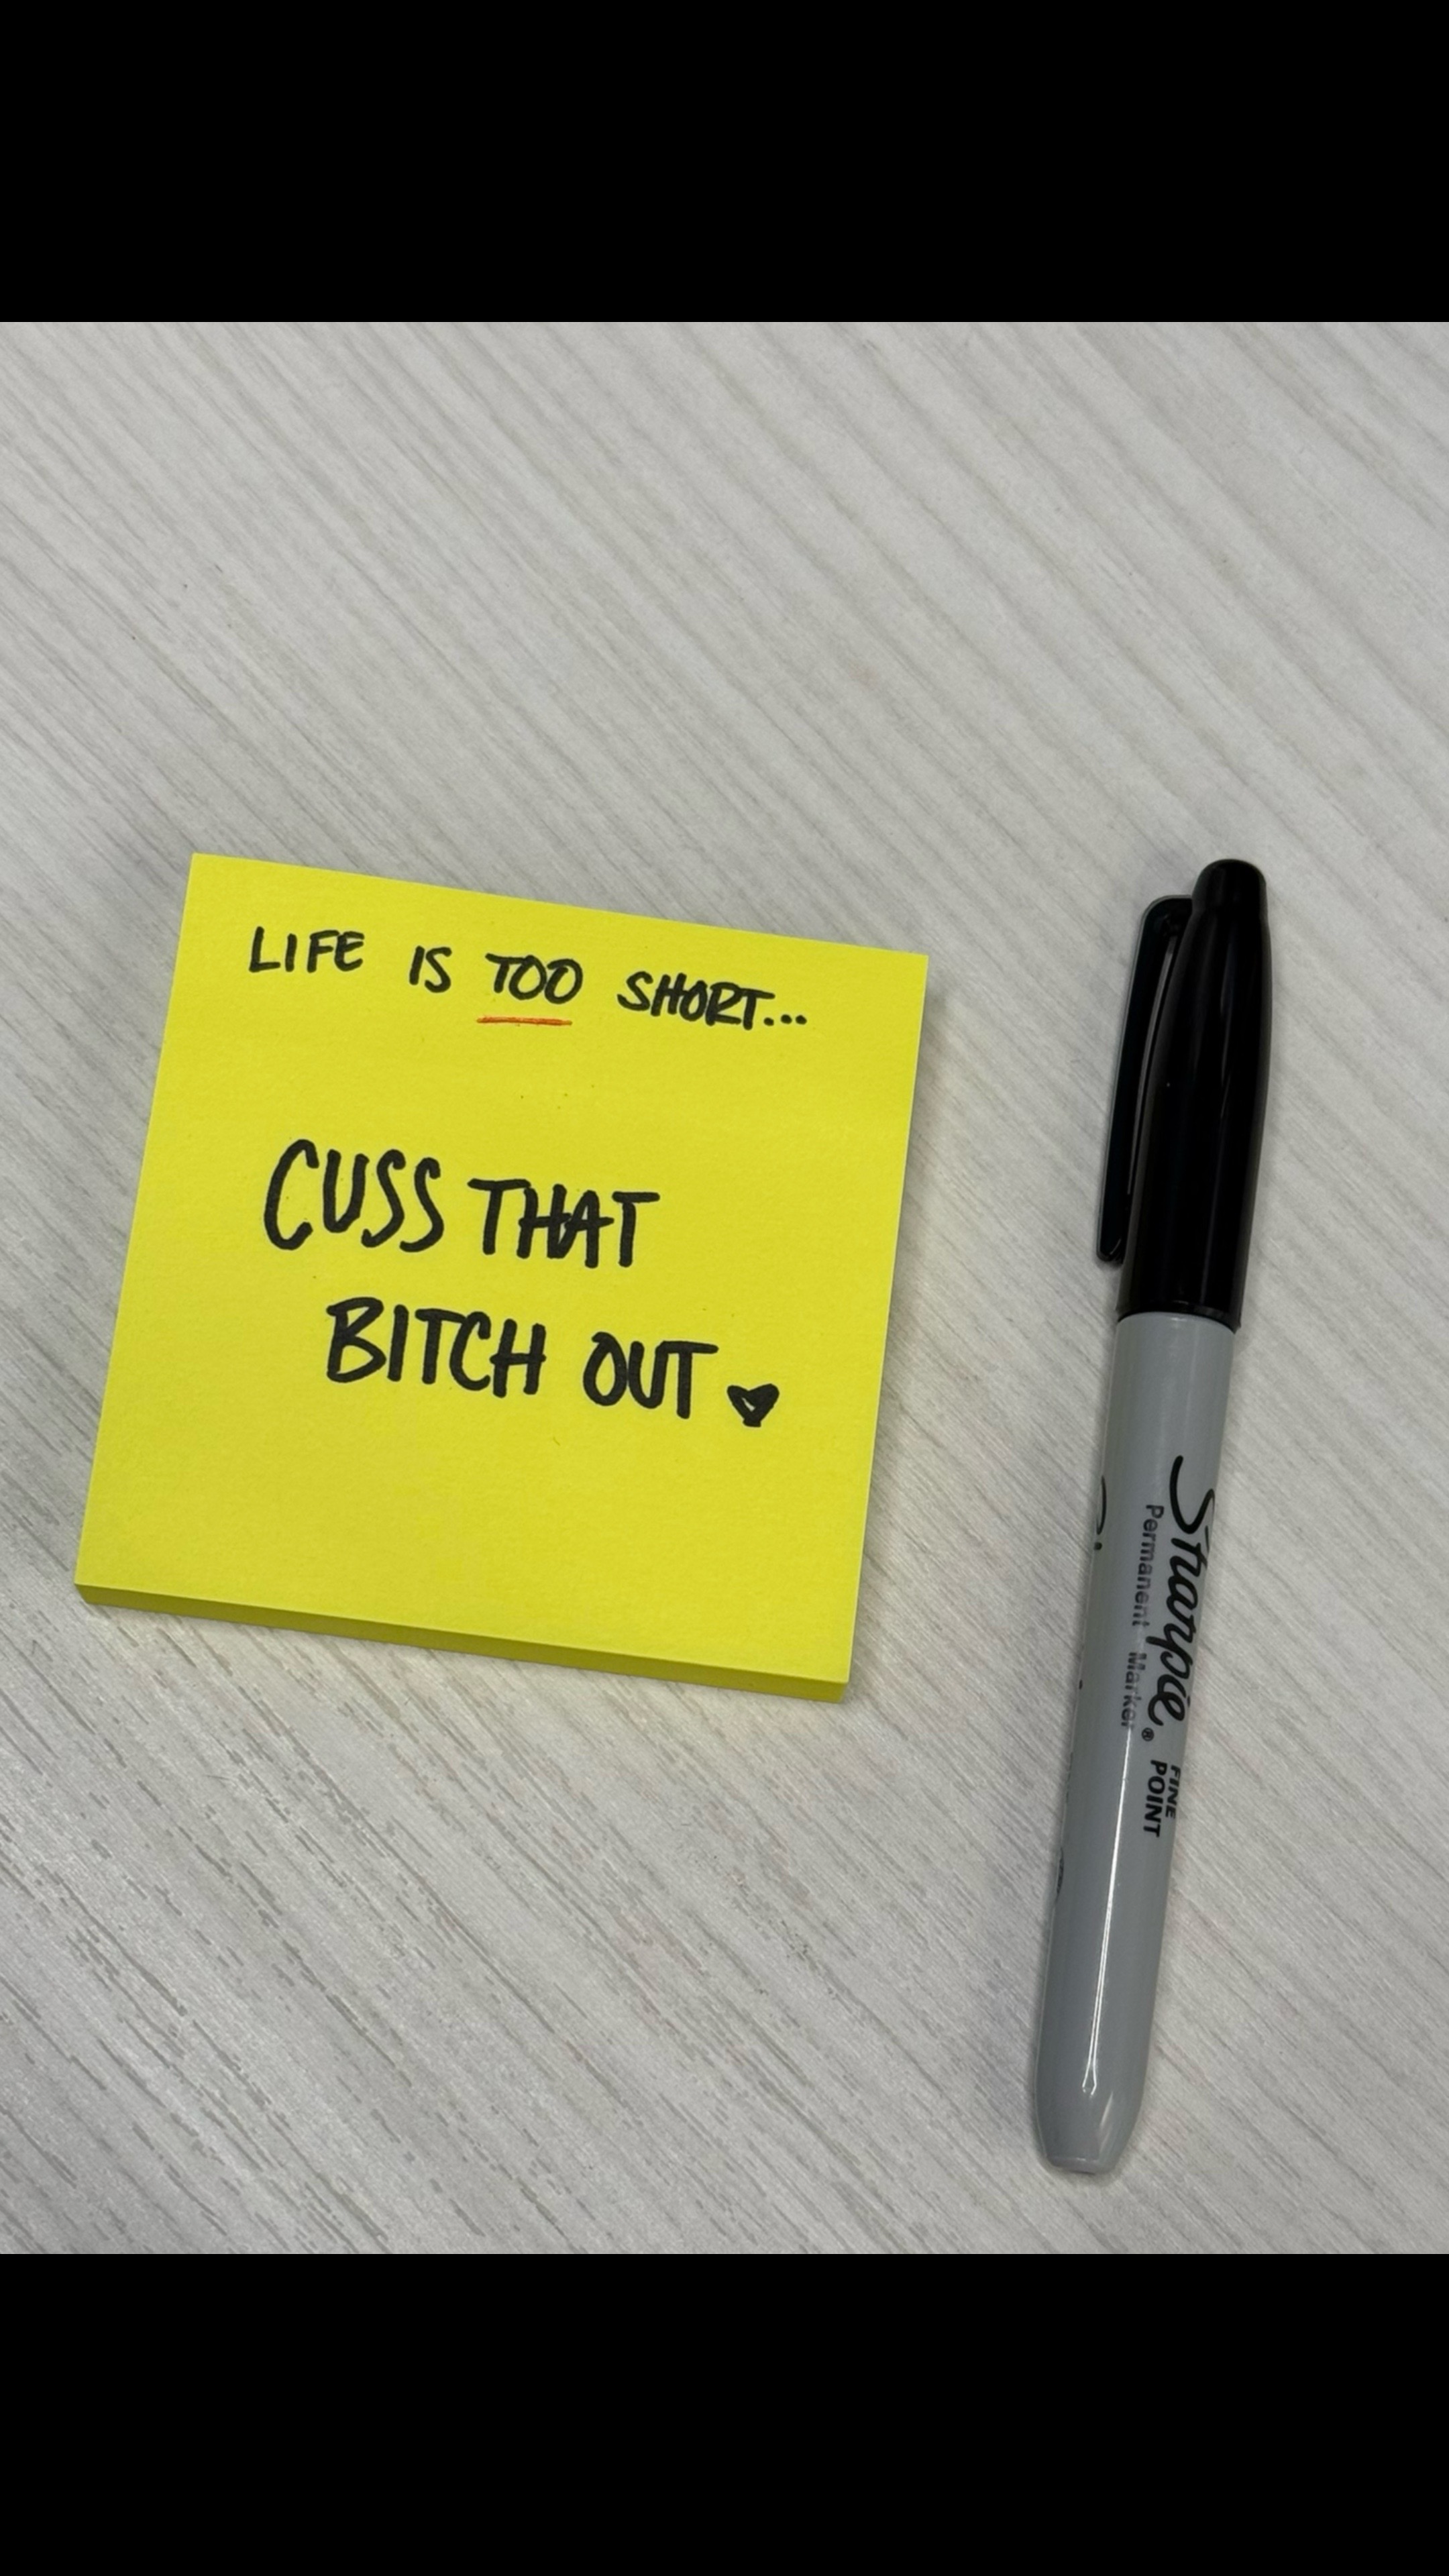 LIFE IS TOO SHORT...
CUSS THAT
BITCH OUT
Sharpie®
FINE
POINT
Permanent Marker